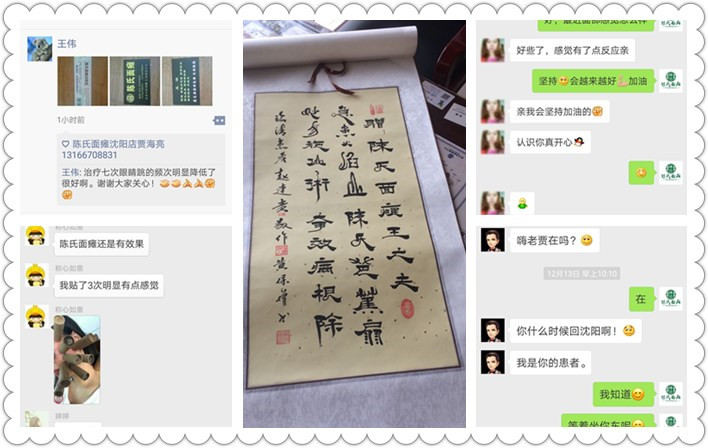 王伟
陈氏面瘫
1小时前
陈氏面瘫沈阳店贾海亮
13166708831
王伟: 治疗七次眼睛跳的频次明显降低了
很好啊。谢谢大家关心！
称心如意
陈氏面瘫还是有效果
称心如意
我贴了3次明显有点感觉
称心如意
婷婷
陈氏面瘫王之夫
火焰山 陈氏芭蕉扇
術 奇效病根除
好，最近面部感觉怎么样
好些了，感觉有了点反应亲
坚持会越来越好加油
亲我会坚持加油的
认识你真开心
嗨老贾在吗？
12月13日 早上10:10
在
你什么时候回沈阳啊！
我是你的患者。
我知道
等着坐你车呢